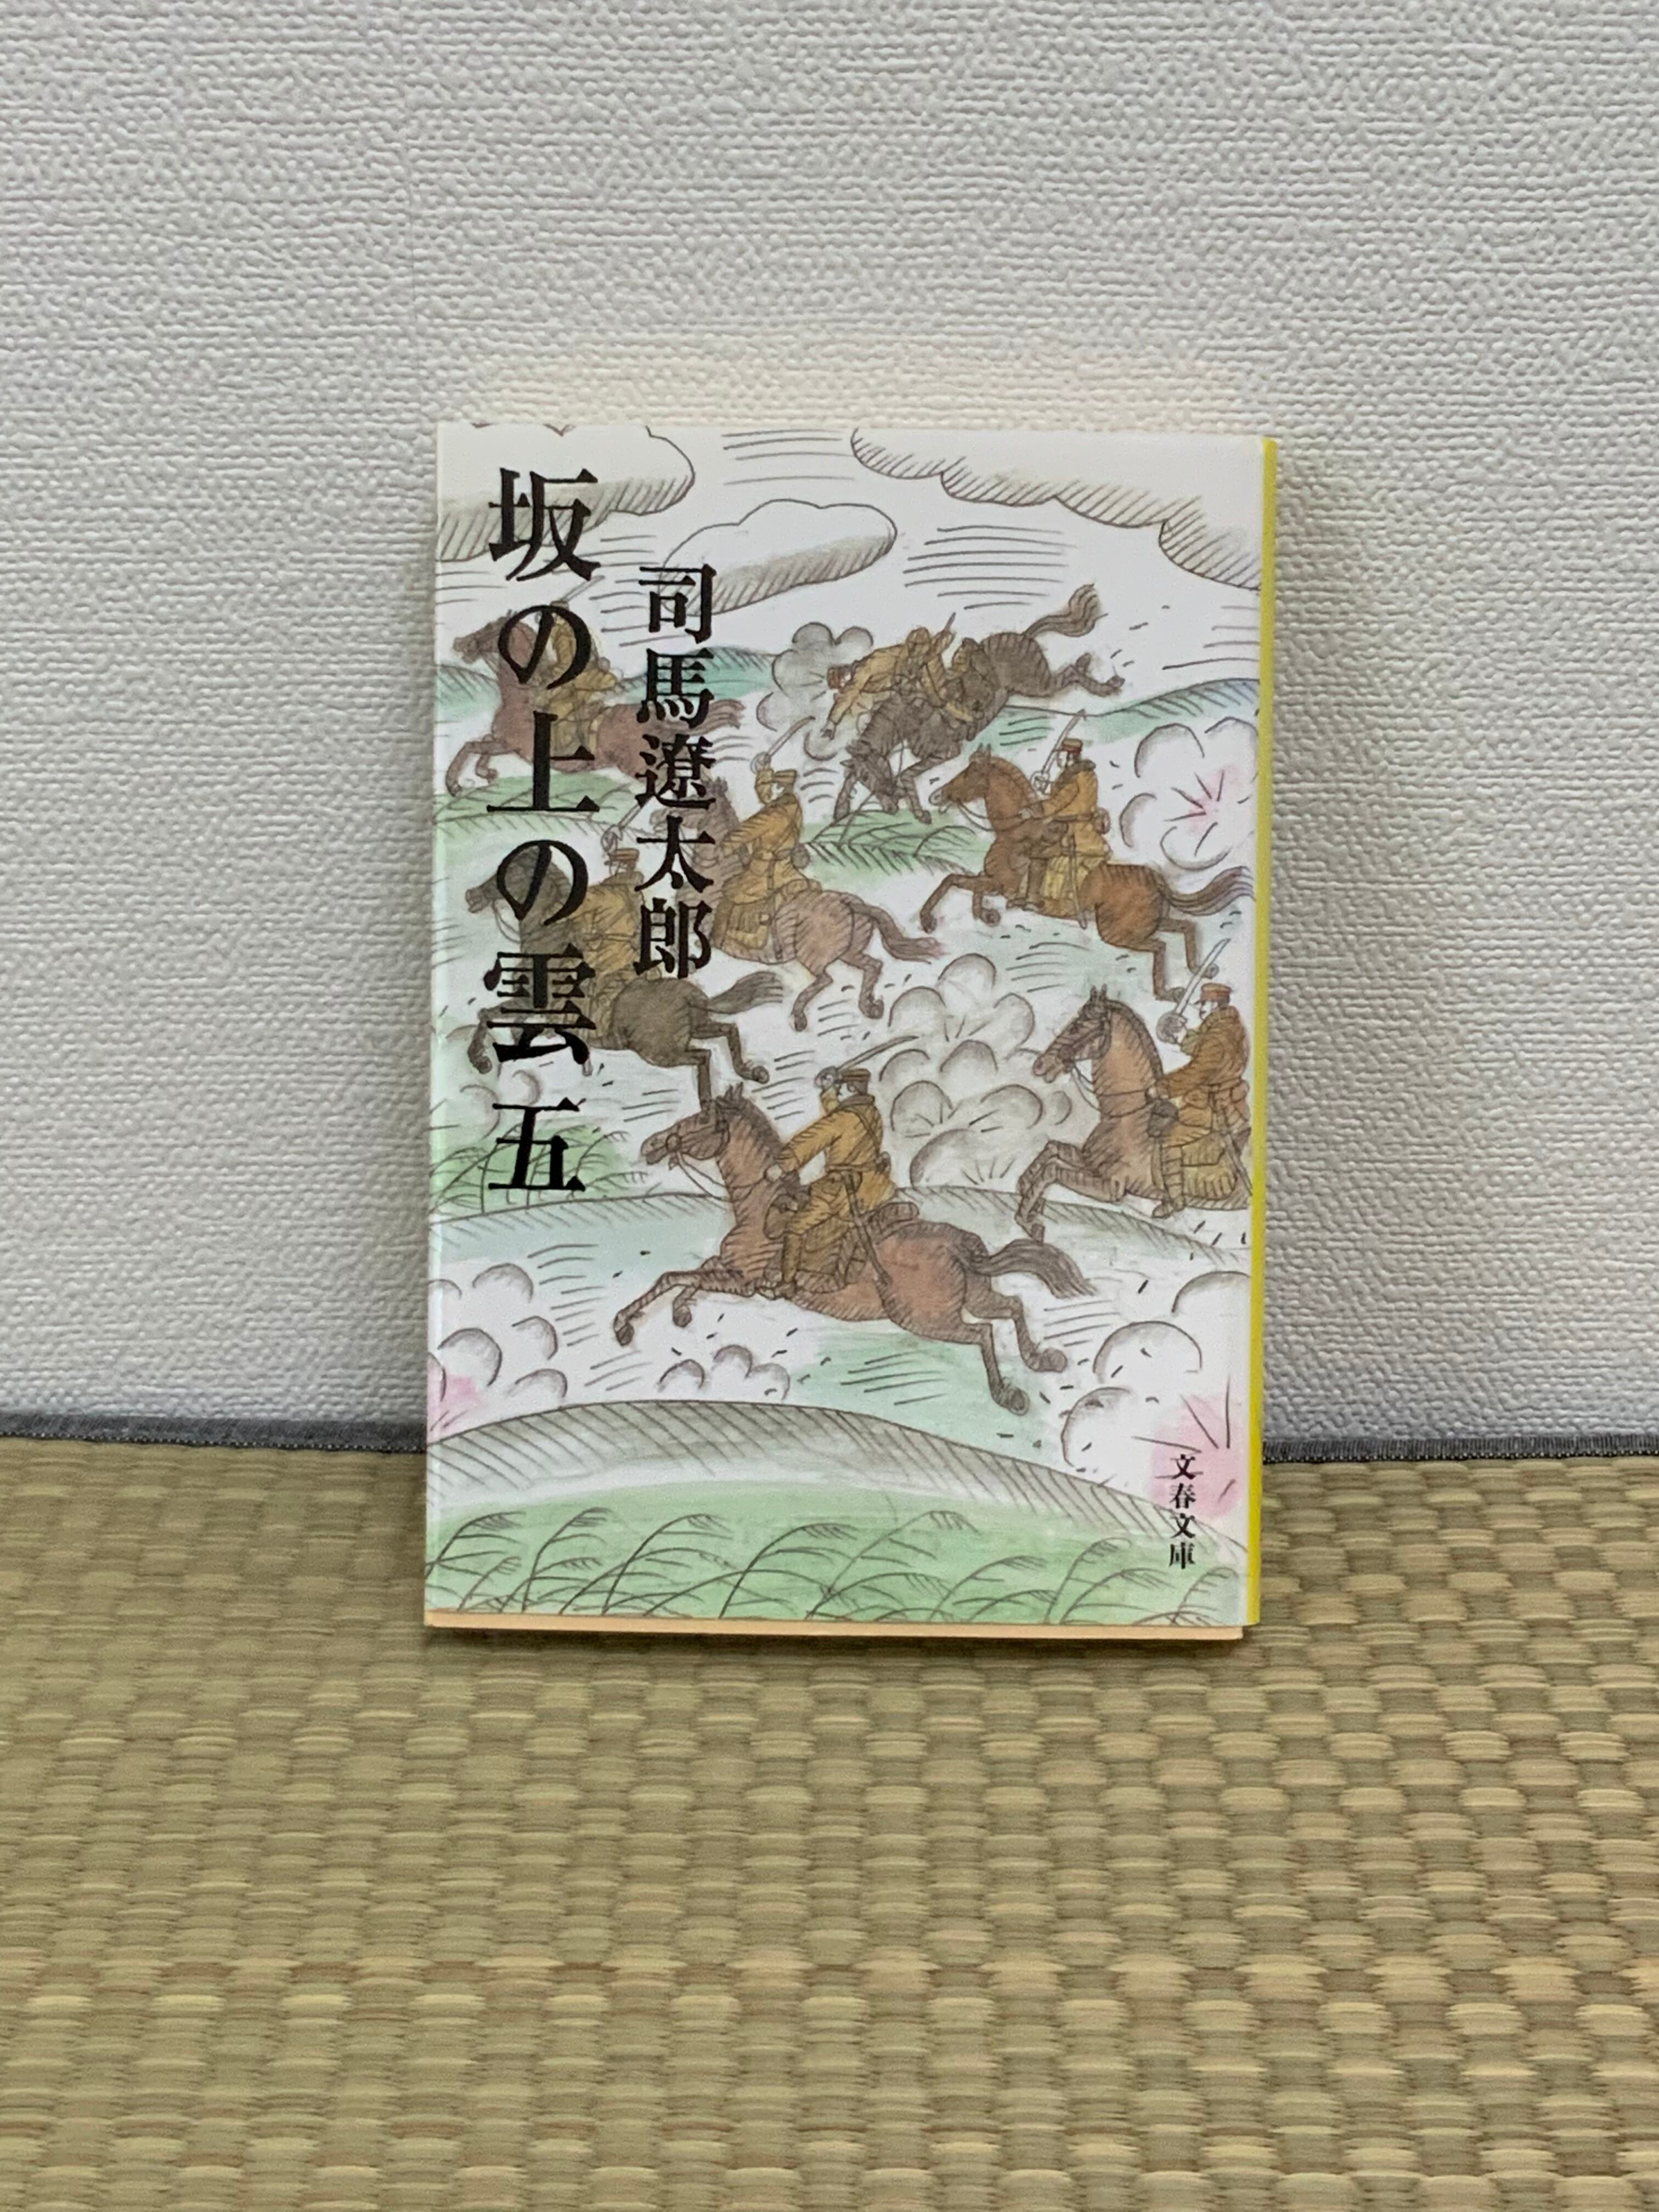 坂の上の雲 五
司馬遼太郎
文春文庫